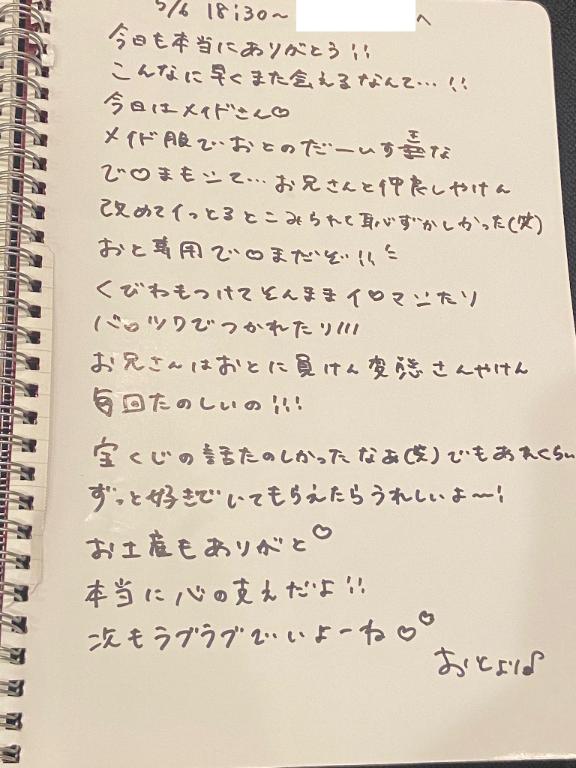 5/6 18:30〜 へ
今日も本当にありがとう!!
こんなに早くまた会えるなんて…!!
今日はメイドさん♡
メイド服でおとのだーいす
で♡まもシて…お兄さんと仲良しやけん
改めてイっとるとこみられて恥ずかしかった(笑)
おと専用で♡まだぞ!!
くびわもつけてそんままイ○マシたり
バ○ックでつかれたり///
お兄さんはおとに負けん変態さんやけん
毎回たのしいの!!!
宝くじの話たのしかったなぁ(笑)でもあれくらい
ずっと好きでいてもらえたらうれしいよ〜!
お土産もありがと♡
本当に心の支えだよ!!
次もラブラブでいよーね♡♡
おとより♪